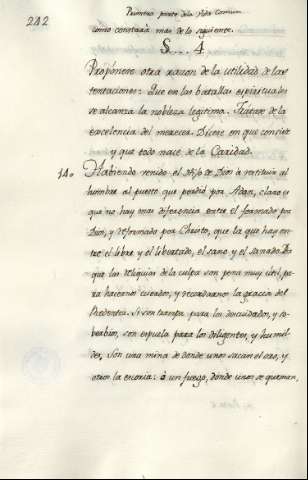 Primera parte de la Vida Comun
242
como constarà mas de lo siguiente.
S. 4
Proponese otra razon de la utilidad de las
tentaciones: Que en las batallas espirituales
se alcanza la nobleza legitima. Tratase de la
excelencia del merecer. Dicese en que consiste
y que todo nace de la Caridad.
14. Habiendo venido el Hijo de Dios à restituir al
hombre al puesto que perdió por Adan, claro es
que no hay mas diferencia entre el formado por
Dios, y reformado por Christo, que la que hay en-
tre el libre y el libertado, el sano y el sanado. Por
que las reliquias de la culpa son pena muy util, pa-
ra hacernos cuidados, y recordarnos la gracia del
Redentor. Si son trampa para los descuidados, y so-
berabios, son espuela para los diligentes, y humil-
des, son una mina de donde unos sacan el oro, y
otros la escoria: ò un fuego, donde unos se queman,